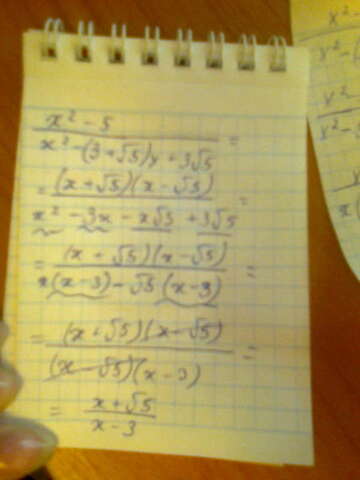 x² - 5
x² - (3 + √5)x + 3√5 =
= (x + √5)(x - √5)
x² - 3x - x√5 + 3√5 =
= (x + √5)(x - √5)
x(x - 3) - √5(x - 3) =
= (x + √5)(x - √5)
(x - √5)(x - 3) =
= x + √5
x - 3
x²-
x²-
x²-
x²-